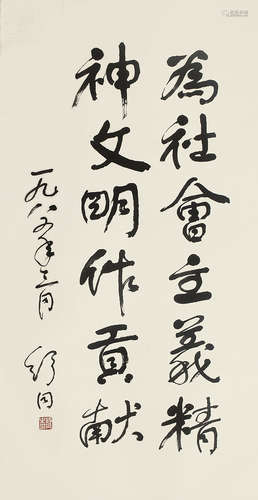 為社會主義精
神文明作貢献
一九八五年三月
舒同